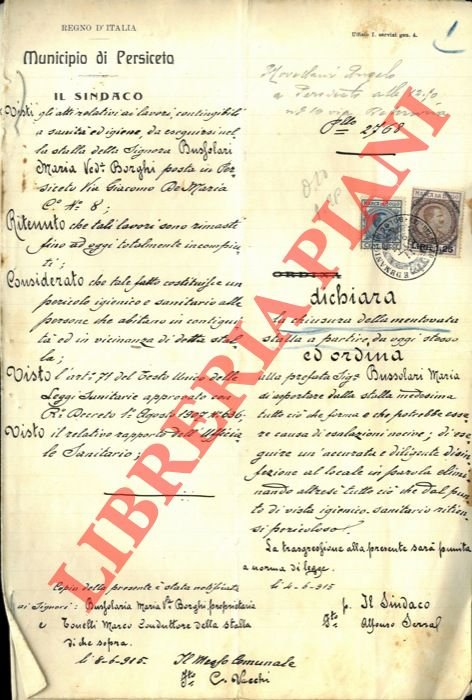 REGNO D'ITALIA
Ufficio I. servizi gen. 4.
1
Municipio di Persiceto
IL SINDACO
Visti gli atti relativi ai lavori, contingibili
a sanità ed igiene, da eseguirsi nel
la stalla della Signora Bussolari
Maria Ved.a Borghi posta in Per
siceto Via Giacomo De Maria
C.o N.o 8;
Ritenuto che tali lavori sono rimasti
fino ad oggi totalmente incompiu
ti;
Considerato che tale fatto costituisce un
pericolo igienico e sanitario alle
persone che abitano in contigui
tà ed in vicinanza di detta stal
la;
Visto l'art.o 71 del Testo Unico delle
Leggi Sanitarie approvato con
R.o Decreto 1.o Agosto 1907 n. 636;
Visto il relativo rapporto dell'Uffici
le Sanitario;
Angelo
a Persiceto alle
2768
ORDINA
dichiara
la chiusura della mentovata
stalla a partire da oggi stesso
ed ordina
alla prefata Sig.a Bussolari Maria
di asportare dalla stalla medesima
tutto ciò che forma e che potrebbe esse
re causa di esalazioni nocive; di ese
guire un'accurata e diligente disin
fezione al locale in parola elimi
nando altresì tutto ciò che dal pun
to di vista igienico sanitario ritien
si pericoloso.
La trasgressione alla presente sarà punita
a norma di legge.
li 4-6-915
p. Il Sindaco
Alfonso
Copia della presente è stata notificata
ai Signori: Bussolari Maria V. Borghi, proprietaria
e Tonelli Marco Conduttore della stalla
di che sopra.
li 8-6-915.
Il Messo Comunale
C. Vecchi
LIBRERIA PIANI